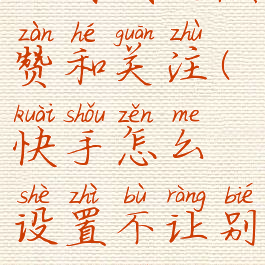 zàn hé guān zhù
赞和关注(
kuài shǒu zěn me
快手怎么
shè zhì bù ràng bié
设置不让别